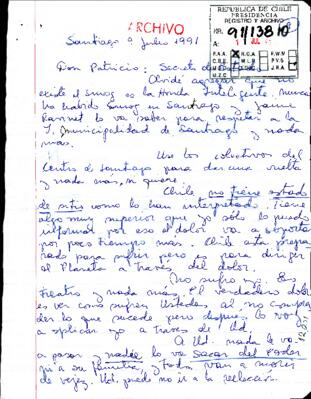 REPUBLICA DE CHILE
PRESIDENCIA
REGISTRO Y ARCHIVO
ARCHIVO
NR. 91/13810
Santiago 9 Julio 1991
P.A.A.
R.C.A.
F.W.M.
C.B.E.
M.L.P.
P.V.S.
M.T.O.
EDEC
J.R.A.
M.Z.C.
Don Patricio: Secreto de
Olvidé agregar que no
existe el smog es la Honda Inteligente. nunca
ha habido Smog en Santiago y Jaime
Ravinet lo va saber para respetar a la
I. Municipalidad de Santiago y nada
mas.
Use los colectivos del
Centro de Santiago para dar una vuelta
y nada mas, si quiere.
Chile no tiene estado
de sitio como lo han interpretado. Tiene
algo muy superior que yo sólo lo puedo
informar por eso el dolor va a soportar
por poco tiempo más. Chile esta prepa
rado para sufrir pero es para dirigir
al Planeta a traves del dolor.
No sufro yo. Es
teatro y nada mas. El verdadero dolor
es ver como sufren Ustedes al no compren
der lo que sucede pero despues lo voy
a aplicar yo a traves de Ud.
A Ud. nada le va
a pasar y nadie lo va sacar del Poder
ni a su familia, y todos van a morir
de vejez. Ud. puedo no ir a la reelección.